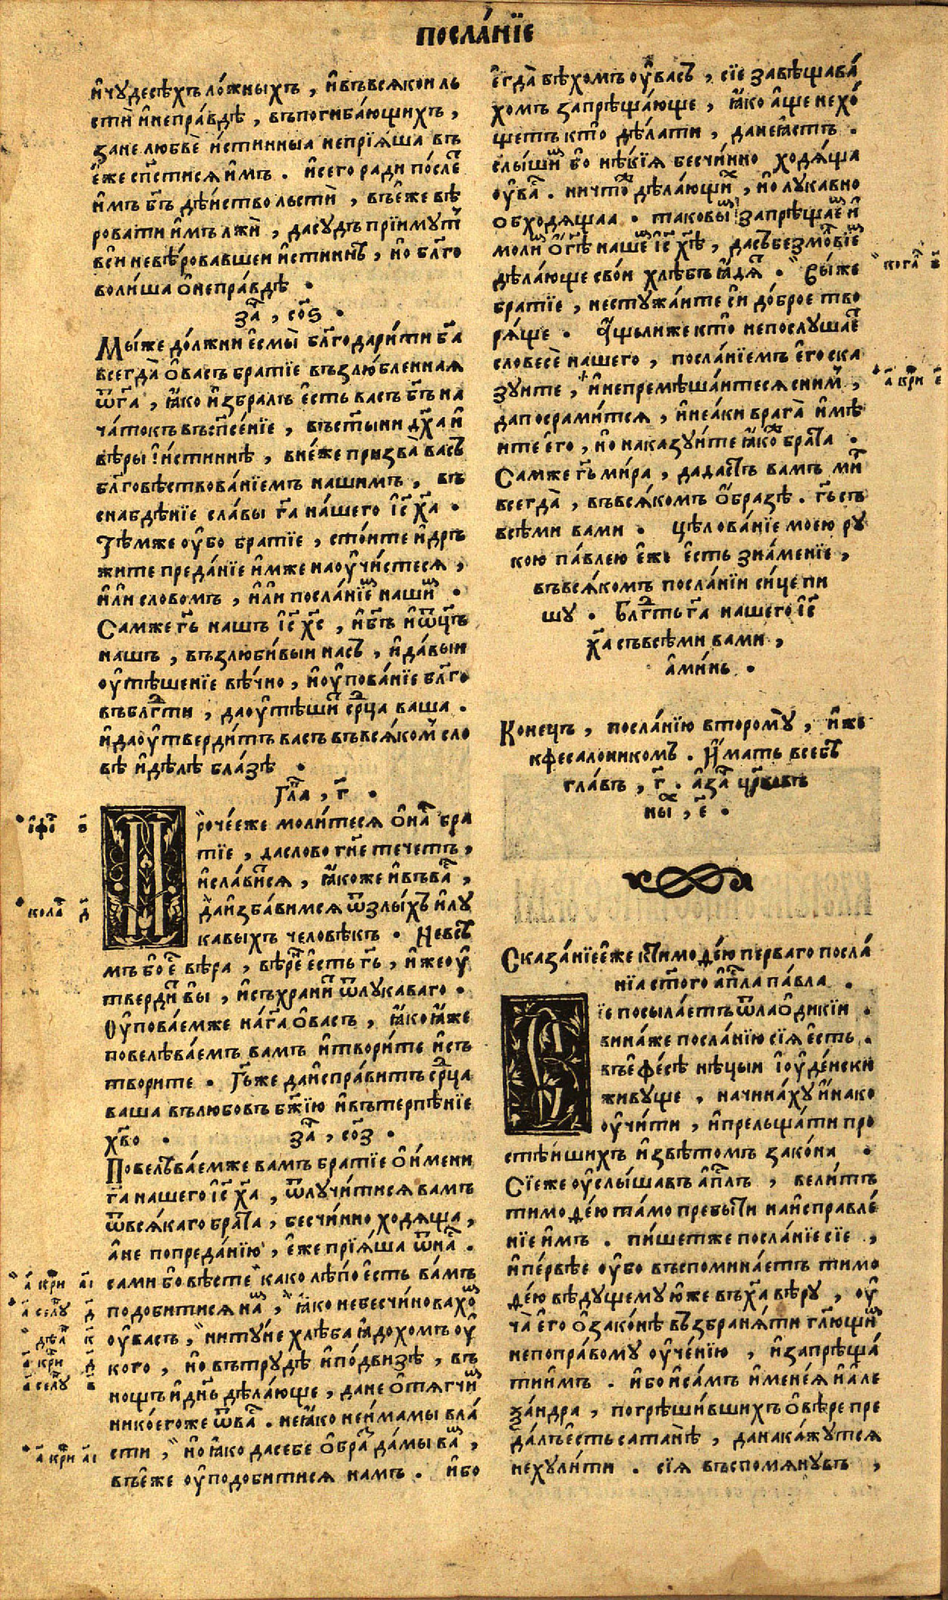 посла́нїе
и҆чудесѣ́хъ ло́жныхъ , и҆въвсякои ль
стѝ и҆непра́вдѣ , въпогиба́ющихъ ,
зане любвѐ и҆́стинныа непрїя́ша въ
е҆́же сп҃стися и҆̀мъ . и҆сего ради по́слеⷮ
и҆̀мъ бг҃ъ дѣ́йство льстѝ , въе҆́же вѣ
ровати и҆̀мъ лжѝ , дасу́дъ прїи́мутⷤ
вси невѣ́ровавшеи и҆́стиннѣ , но҆ бл҃го
воли́ша ѡ҆непра́вдѣ .
заⷱ҇ , со҃ѕ .
Мы́же до́лжни е҆смы̀ бл҃годари́ти бг҃а
всегда̀ ѡ҆васъ бра́тїе възлю́бленная
ѿг҃а , ꙗ҆́ко и҆збра́лъ е҆́сть васъ бг҃ъ на
ча́токъ въсп҃се́нїе , въст҃ы́ни дх҃а и҆
вѣ́ры и҆́стиннѣ , вне́же призва̀ васъ
бл҃говѣствова́нїемъ нашимъ , въ
снабдѣ́нїе сла́вы гⷭ҇а на́шего і҆с҃ х҃а .
тѣ́мже оу҆̀бо братїе , сто́ите и҆дръ
жите преда́нїе и҆́мже наоу҆чи́стеся ,
и҆́ли сло́вомъ , и҆́ли посла́нїеⷨ нашиⷨ .
Самже гⷭ҇ь нашъ і҆с҃ хс҃ , и҆бг҃ъ и҆ѿц҃ъ
нашъ , възлюби́выи насъ , и҆да́выи
оу҆тѣ́шенїе вѣ́чно , и҆оу҆пова́нїе бл҃го
въбл҃гⷣти , даоу҆тѣ́шиⷮ срⷣца ваша .
и҆даоу҆тверди́тъ васъ въвся́комⷹ сло
вѣ и҆дѣ́лѣ бла́зѣ .
гл҃а , г҃ .
Проче́еже моли́теся ѡ҆на́ⷭ бра
тїе , даслово гн҃е тече́тъ ,
и҆сла́витⷭся , ꙗ҆́коже и҆въва́ⷭ ,
даи҆зба́вимся ѿзлы́хъ и҆лу
ка́выхъ человѣ́къ . Невсѣⷯ
мъ бо҆ е҆ⷭ вѣ́ра , вѣ́рⷩе е҆́сть гⷭ҇ь , и҆́жеоу҆
тверди́ⷮ вы̀ , и҆съхрани́ⷮ ѿлука́ваго .
Оу҆пова́емже наⷭг҃а ѡ҆васъ , ꙗ҆́ко ꙗ҆́же
повелѣва́емъ вамъ и҆твори́те и҆съ
творите . Гь҃же даи҆спра́витъ срⷣца
ваша вълюбовъ бж҃їю и҆вътерпѣ́нїе
хв҃о . заⷱ҇ , со҃з .
Повелѣва́емже вамъ братїе ѡ҆и҆́мени
гⷭ҇а нашего і҆с҃ х҃а , ѿлучи́тися вамъ
ѿвся́каго бра́та , бесчи́нно ходя́ща ,
а҆́не попреда́нїю , е҆́же прїя́ша ѿна́ⷭ .
сами бо҆ вѣ́сте како лѣ́по е҆́сть ва́мъ
подобитися наⷨ , ꙗ҆́ко небесчи́новахоⷨ
оу҆васъ , ниту́не хлѣ́ба ꙗ҆до́хомъ оу҆
кого , но҆ вътру́дѣ и҆по́двизѣ , въ
нощъ и҆днь҃ дѣ́лающе , дане ѡ҆тягчиⷨ
нико́егоже ѿва́ⷭ . не ꙗ҆́ко неи҆́мамы вла́
сти , но҆ ꙗ҆́ко дасебе ѡ҆́браⷥ да́мы ваⷨ ,
въе҆́же оу҆подо́битися намъ . и҆бо
е҆гда̀ бѣ́хомъ оу҆васъ , сїе завѣщава́
хомъ запрѣща́юще , ꙗ҆́ко а҆́ще нехо́
щетъ кто̀ дѣ́лати , дане ꙗ҆́стъ .
слы́шиⷨ бо҆ нѣ́кїя бесчи́нно ходя́ща
оу҆ваⷭ . ничто́ⷤ дѣ́лающиⷯ , но҆ лука́вно
обходя́щаа . таковы́ⷨ запрѣща́еⷨ и҆
моли́ⷨ ѡ҆гⷭ҇ѣ на́шеⷨ і҆с҃ѣ хс҃ѣ , дасъбезмо́лвїеⷨ
дѣ́лающе сво́и хлѣ́бъ ꙗ҆дя́ⷮ . Вы́же
братїе , несту́жаите си до́брое тво
ря́ще . А҆́щылиже кто̀ непослу́шаеⷮ
словесѐ нашего , посла́нїемъ е҆го ска
зу́ите , и҆непремѣша́итеся сни́мⷹ ,
дапосрами́тся , и҆неа́ки врага̀ и҆мѣ
и҆те е҆го , но҆ наказу́ите ꙗ҆́коⷤ бра́та .
Самже гⷭ҇ь ми́ра , дада́стъ вамъ миⷬ
всегда̀ , въвся́комъ ѡ҆́бразѣ . гⷭ҇ь съ
всѣ́ми вами . цѣлова́нїе моею ру
кою па́влею е҆́жь е҆́сть зна́менїе ,
въвся́комъ посла́нїи си́це пи
шу . Блⷣгть гⷭ҇а нашего і҆с҃
х҃а съвсѣ́ми вами ,
а҆ми́нь .
Конецъ , посла́нїю второму̀ , и҆́жь
кфесалоникомъ . И҆́мать всебѣ̀
главъ , г҃ . а҆заⷱ҇ цр҃ковъ
ныⷯ , е҃ .
Сказа́нїе е҆́же ктимоѳе́ю перваго посла́
нїя ст҃ого а҆пⷭ҇ла па́вла .
Сїе посыла́етъ ѿлаѡ҆дикїи .
вина́же посла́нїю сїя́ е҆́сть .
въе҆фе́сѣ нѣ́цыи і҆оуде́нски
живуще , начина́ху и҆́нако
оу҆чи́ти , и҆прелща́ти про
стѣ́ишихъ и҆звѣ́томъ зако́на .
Сїеже оу҆слы́шавъ а҆пⷭ҇лъ , вели́тъ
тимоѳе́ю та́мо пребы́ти наи҆справле́
нїе и҆̀мъ . пи́шетже посла́нїе сїе ,
и҆пе́рвѣе оу҆бо въспомина́етъ тимо
ѳе́ю вѣ́дущему ю҆́же въх҃а вѣ́ру , оу҆
ча̀ е҆го ѡ҆зако́нѣ възбраня́ти гл҃ющиⷨ
непопра́вому оу҆че́нїю , и҆запрѣща́
тии҆̀мъ . и҆́бо и҆са́мъ и҆мене́я и҆але
ѯа́ндра , погрѣши́вшихъ ѡ҆вѣре пре
да́лъ е҆́сть сатанѣ̀ , данака́жутся
нехули́ти . сїя въспомяну́въ ,
когаⷮ
а҃ кри е҃
і҆фі
колаⷭ д҃
а҃ кри а҃і
а҃ селу д҃
дѣаⷩ к҃
а҃ кри д҃
а҃ селу в҃
а҃ кри а҃і